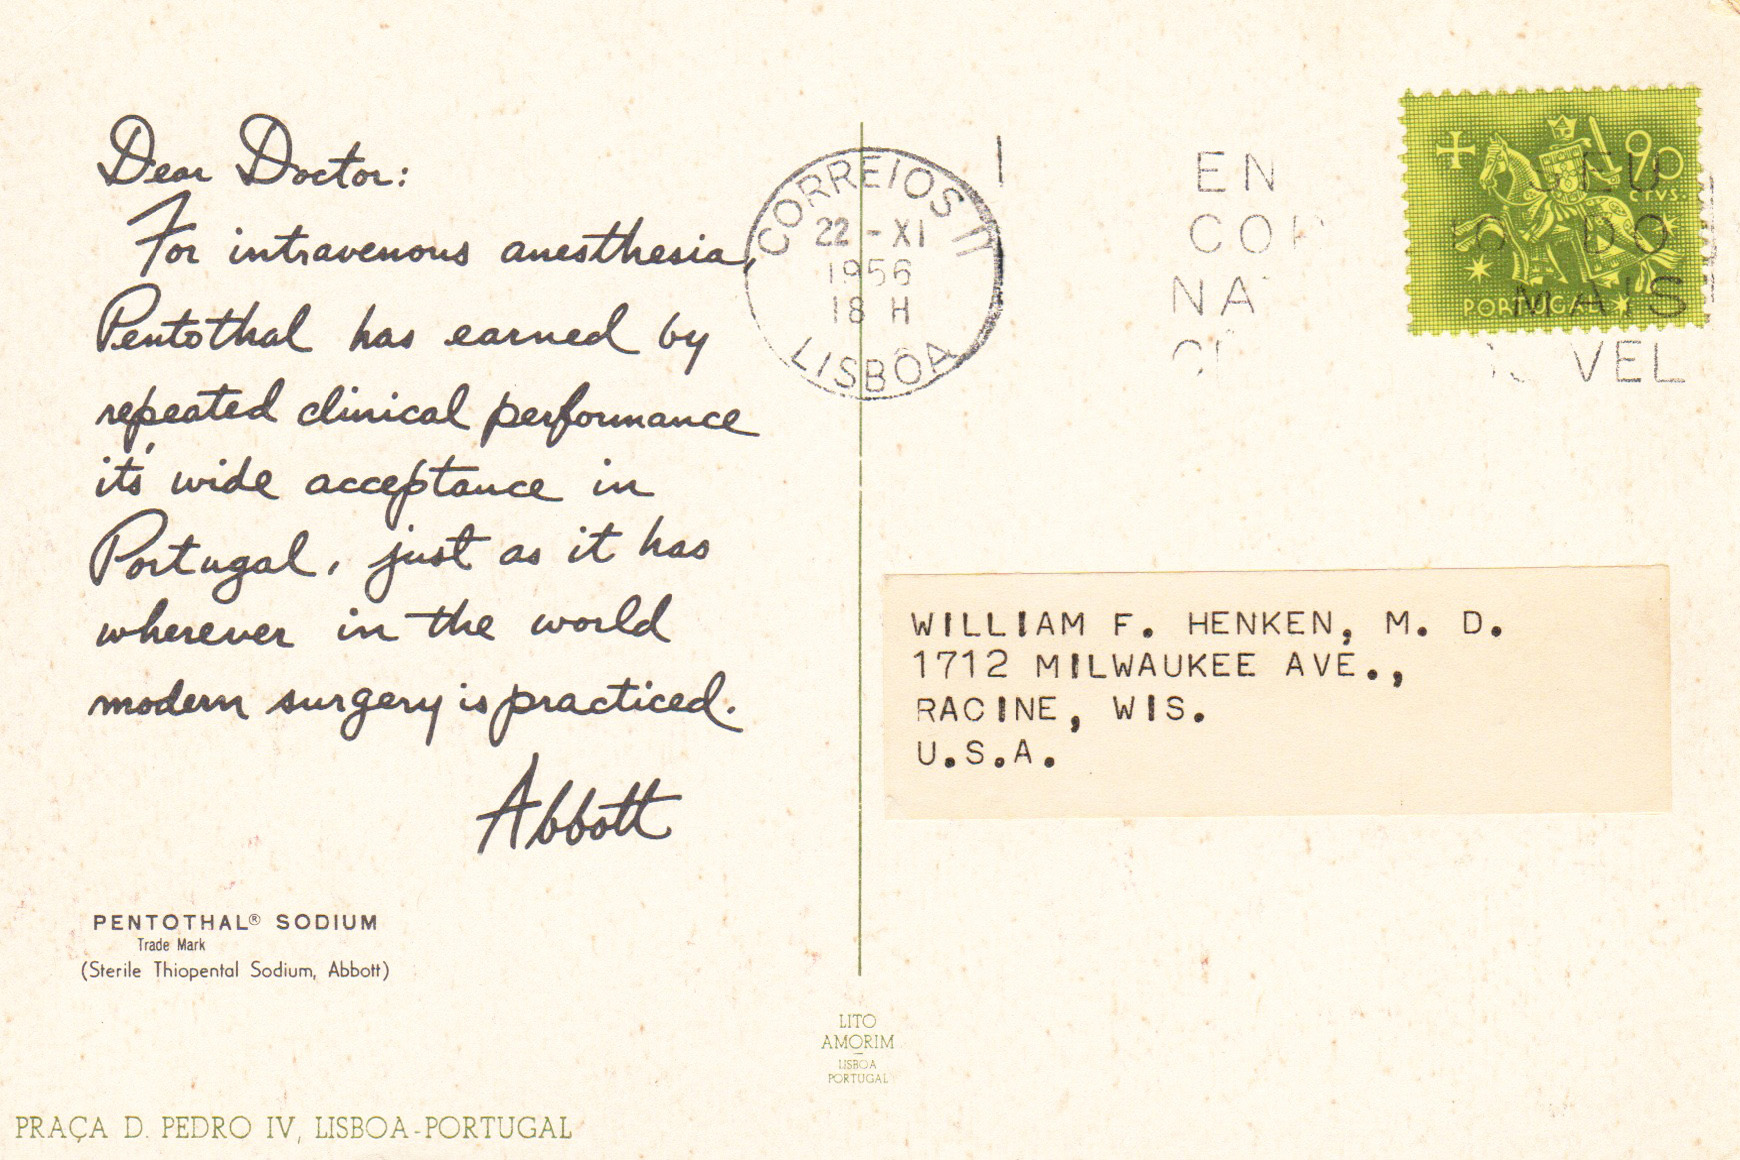 Dear Doctor:
For intravenous anesthesia,
Pentothal has earned by
repeated clinical performance
it's wide acceptance in
Portugal, just as it has
wherever in the world
modern surgery is practiced.
Abbott
PENTOTHAL® SODIUM
Trade Mark
(Sterile Thiopental Sodium, Abbott)
PRAÇA D. PEDRO IV, LISBOA-PORTUGAL
LITO
AMORIM
LISBOA
PORTUGAL
CORREIOS
22-XI
1956
18 H
LISBOA
EN SEU
DO
MAIS
90
CTVS.
PORTUGAL
WILLIAM F. HENKEN, M. D.
1712 MILWAUKEE AVE.,
RACINE, WIS.
U.S.A.